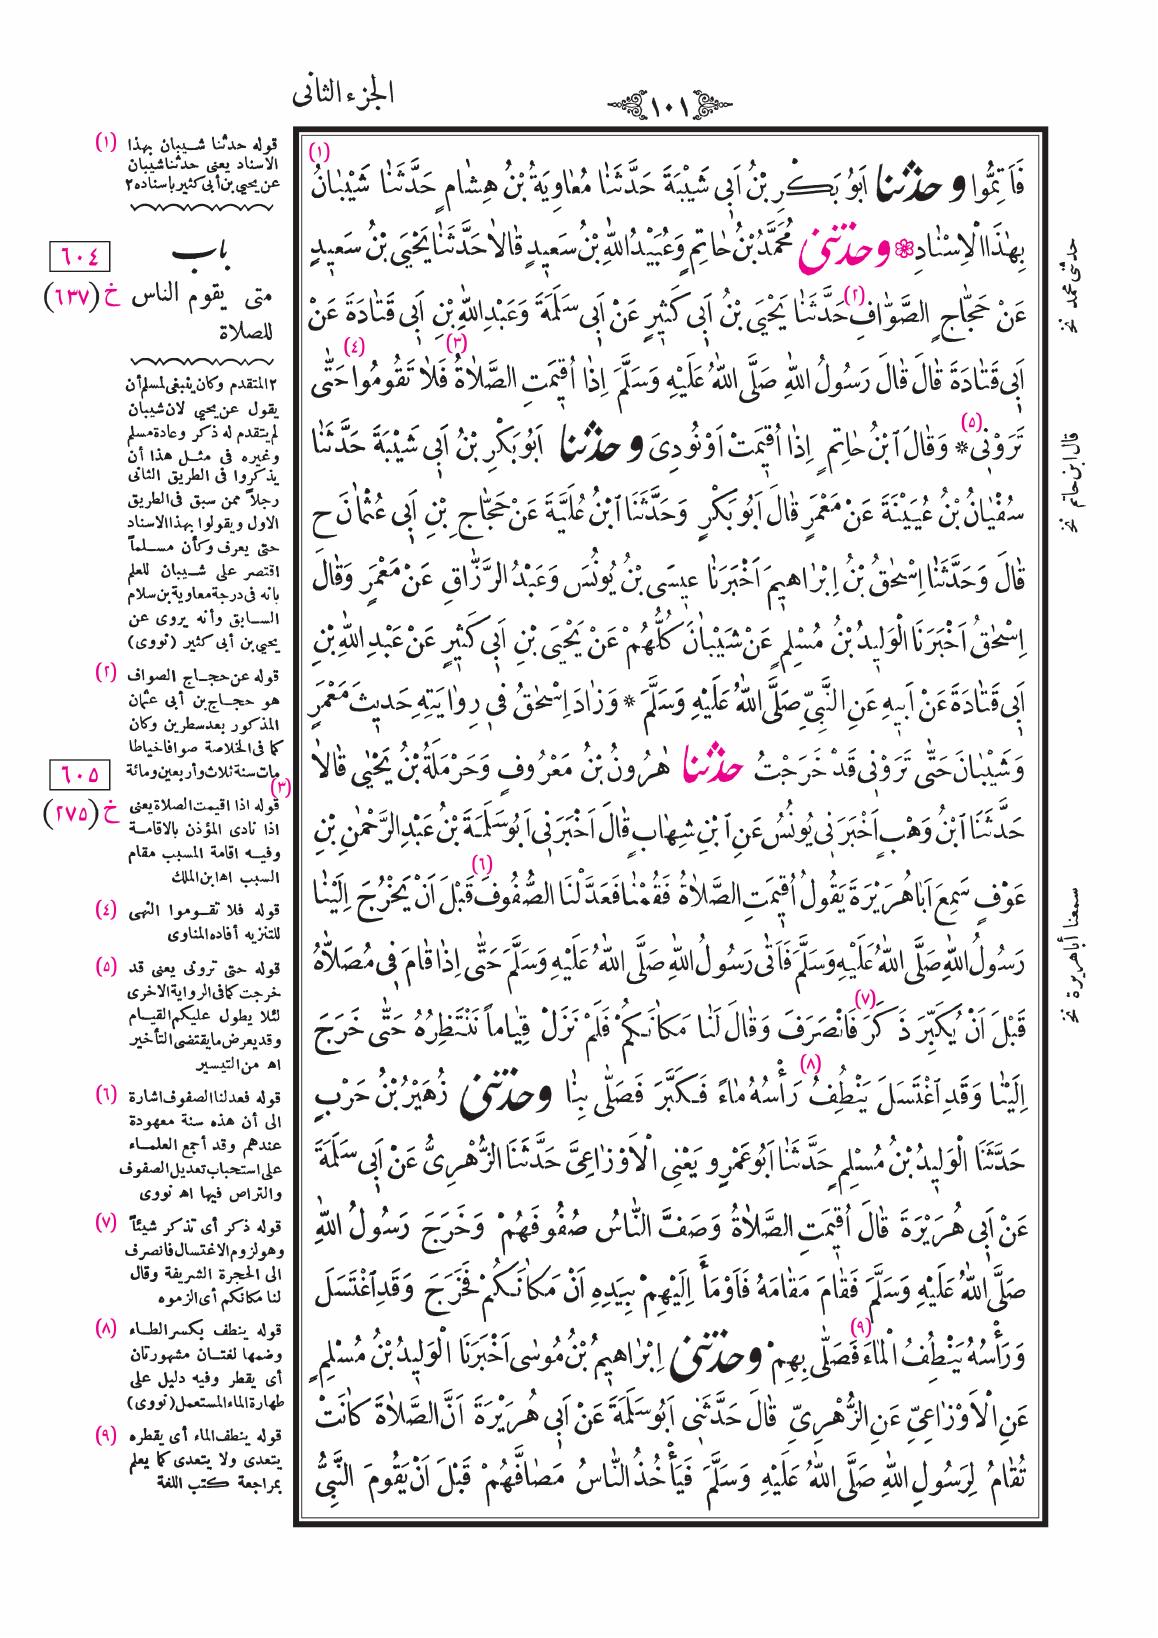 الجزء الثانى
١٠١
(١)
فَاَتِمُّوا وحدثنا اَبُو بَكْرِ بْنُ اَبِى شَيْبَةَ حَدَّثَنَا مُعَاوِيَةُ بْنُ هِشَامٍ حَدَّثَنَا شَيْبَانُ
بِهٰذَا الْاِسْنَادِ ❁ وحدثنى مُحَمَّدُ بْنُ حَاتِمٍ وَعُبَيْدُ اللهِ بْنُ سَعِيدٍ قَالَا حَدَّثَنَا يَحْيَى بْنُ سَعِيدٍ
عَنْ حَجَّاجٍ الصَّوَّافِ (٢) حَدَّثَنَا يَحْيَى بْنُ اَبِى كَثِيرٍ عَنْ اَبِى سَلَمَةَ وَعَبْدِ اللهِ بْنِ اَبِى قَتَادَةَ عَنْ
اَبِى قَتَادَةَ قَالَ قَالَ رَسُولُ اللهِ صَلَّى اللهُ عَلَيْهِ وَسَلَّمَ اِذَا اُقِيمَتِ الصَّلَاةُ (٣) فَلَا تَقُومُوا (٤) حَتَّى
تَرَوْنِى (٥) * وَقَالَ ابْنُ حَاتِمٍ اِذَا اُقِيمَتْ اَوْ نُودِىَ وحدثنا اَبُو بَكْرِ بْنُ اَبِى شَيْبَةَ حَدَّثَنَا
سُفْيَانُ بْنُ عُيَيْنَةَ عَنْ مَعْمَرٍ قَالَ اَبُو بَكْرٍ وَحَدَّثَنَا ابْنُ عُلَيَّةَ عَنْ حَجَّاجِ بْنِ اَبِى عُثْمَانَ ح
قَالَ وَحَدَّثَنَا اِسْحٰقُ بْنُ اِبْرَاهِيمَ اَخْبَرَنَا عِيسَى بْنُ يُونُسَ وَعَبْدُ الرَّزَّاقِ عَنْ مَعْمَرٍ وَقَالَ
اِسْحٰقُ اَخْبَرَنَا الْوَلِيدُ بْنُ مُسْلِمٍ عَنْ شَيْبَانَ كُلُّهُمْ عَنْ يَحْيَى بْنِ اَبِى كَثِيرٍ عَنْ عَبْدِ اللهِ بْنِ
اَبِى قَتَادَةَ عَنْ اَبِيهِ عَنِ النَّبِىِّ صَلَّى اللهُ عَلَيْهِ وَسَلَّمَ * وَزَادَ اِسْحٰقُ فِى رِوَايَتِهِ حَدِيثَ مَعْمَرٍ
وَشَيْبَانَ حَتَّى تَرَوْنِى قَدْ خَرَجْتُ حدثنا هٰرُونُ بْنُ مَعْرُوفٍ وَحَرْمَلَةُ بْنُ يَحْيٰى قَالَا
حَدَّثَنَا ابْنُ وَهْبٍ اَخْبَرَنِى يُونُسُ عَنِ ابْنِ شِهَابٍ قَالَ اَخْبَرَنِى اَبُو سَلَمَةَ بْنُ عَبْدِ الرَّحْمٰنِ بْنِ
عَوْفٍ سَمِعَ اَبَا هُرَيْرَةَ يَقُولُ اُقِيمَتِ الصَّلَاةُ فَقُمْنَا فَعَدَّلْنَا الصُّفُوفَ (٦) قَبْلَ اَنْ يَخْرُجَ اِلَيْنَا
رَسُولُ اللهِ صَلَّى اللهُ عَلَيْهِ وَسَلَّمَ فَاَتَى رَسُولُ اللهِ صَلَّى اللهُ عَلَيْهِ وَسَلَّمَ حَتَّى اِذَا قَامَ فِى مُصَلَّاهُ
قَبْلَ اَنْ يُكَبِّرَ ذَكَرَ (٧) فَانْصَرَفَ وَقَالَ لَنَا مَكَانَكُمْ فَلَمْ نَزَلْ قِيَاماً نَنْتَظِرُهُ حَتَّى خَرَجَ
اِلَيْنَا وَقَدِ اغْتَسَلَ يَنْطُِفُ (٨) رَأْسُهُ مَاءً فَكَبَّرَ فَصَلَّى بِنَا وحدثنى زُهَيْرُ بْنُ حَرْبٍ
حَدَّثَنَا الْوَلِيدُ بْنُ مُسْلِمٍ حَدَّثَنَا اَبُو عَمْرٍو يَعْنِى الْاَوْزَاعِىَّ حَدَّثَنَا الزُّهْرِىُّ عَنْ اَبِى سَلَمَةَ
عَنْ اَبِى هُرَيْرَةَ قَالَ اُقِيمَتِ الصَّلَاةُ وَصَفَّ النَّاسُ صُفُوفَهُمْ وَخَرَجَ رَسُولُ اللهِ
صَلَّى اللهُ عَلَيْهِ وَسَلَّمَ فَقَامَ مَقَامَهُ فَاَوْمَأَ اِلَيْهِمْ بِيَدِهِ اَنْ مَكَانَكُمْ فَخَرَجَ وَقَدِ اغْتَسَلَ
وَرَأْسُهُ يَنْطِفُ الْمَاءَ (٩) فَصَلَّى بِهِمْ وحدثنى اِبْرَاهِيمُ بْنُ مُوسَى اَخْبَرَنَا الْوَلِيدُ بْنُ مُسْلِمٍ
عَنِ الْاَوْزَاعِىِّ عَنِ الزُّهْرِىِّ قَالَ حَدَّثَنِى اَبُو سَلَمَةَ عَنْ اَبِى هُرَيْرَةَ اَنَّ الصَّلَاةَ كَانَتْ
تُقَامُ لِرَسُولِ اللهِ صَلَّى اللهُ عَلَيْهِ وَسَلَّمَ فَيَأْخُذُ النَّاسُ مَصَافَّهُمْ قَبْلَ اَنْ يَقُومَ النَّبِىُّ
حدثنى محمد نخ
قال ابن حاتم نخ
سمعنا أبا هريرة نخ
(١) قوله حدثنا شيبان بهذا
الاسناد يعنى حدثنا شيبان
عن يحيى بن أبى كثير باسناده ٢
باب
٦٠٤
متى يقوم الناس خ (٦٣٧)
للصلاة
٢ المتقدم وكان ينبغى لمسلم أن
يقول عن يحيى لان شيبان
لم يتقدم له ذكر وعادة مسلم
وغيره فى مثل هذا أن
يذكروا فى الطريق الثانى
رجلاً ممن سبق فى الطريق
الاول ويقولوا بهذا الاسناد
حتى يعرف وكأن مسلماً
اقتصر على شيبان للعلم
بانه فى درجة معاوية بن سلام
السابق وأنه يروى عن
يحيى بن أبى كثير (نووى)
(٢) قوله عن حجاج الصواف
هو حجاج بن أبى عثمان
المذكور بعد سطرين وكان
كما فى الخلاصة صوافا خياطا
مات سنة ثلاث وأربعين ومائة
٦٠٥
خ (٢٧٥)
(٣) قوله اذا اقيمت الصلاة يعنى
اذا نادى المؤذن بالاقامة
وفيه اقامة المسبب مقام
السبب اه ابن الملك
(٤) قوله فلا تقوموا النهى
للتنزيه أفاده المناوى
(٥) قوله حتى ترونى يعنى قد
خرجت كما فى الرواية الاخرى
لئلا يطول عليكم القيام
وقد يعرض ما يقتضى التأخير
اه من التيسير
(٦) قوله فعدلنا الصفوف اشارة
الى أن هذه سنة معهودة
عندهم وقد أجمع العلماء
على استحباب تعديل الصفوف
والتراص فيها اه نووى
(٧) قوله ذكر أى تذكر شيئاً
وهو لزوم الاغتسال فانصرف
الى الحجرة الشريفة وقال
لنا مكانكم أى الزموه
(٨) قوله ينطف بكسر الطاء
وضمها لغتان مشهورتان
أى يقطر وفيه دليل على
طهارة الماء المستعمل (نووى)
(٩) قوله ينطف الماء أى يقطره
يتعدى ولا يتعدى كما يعلم
بمراجعة كتب اللغة